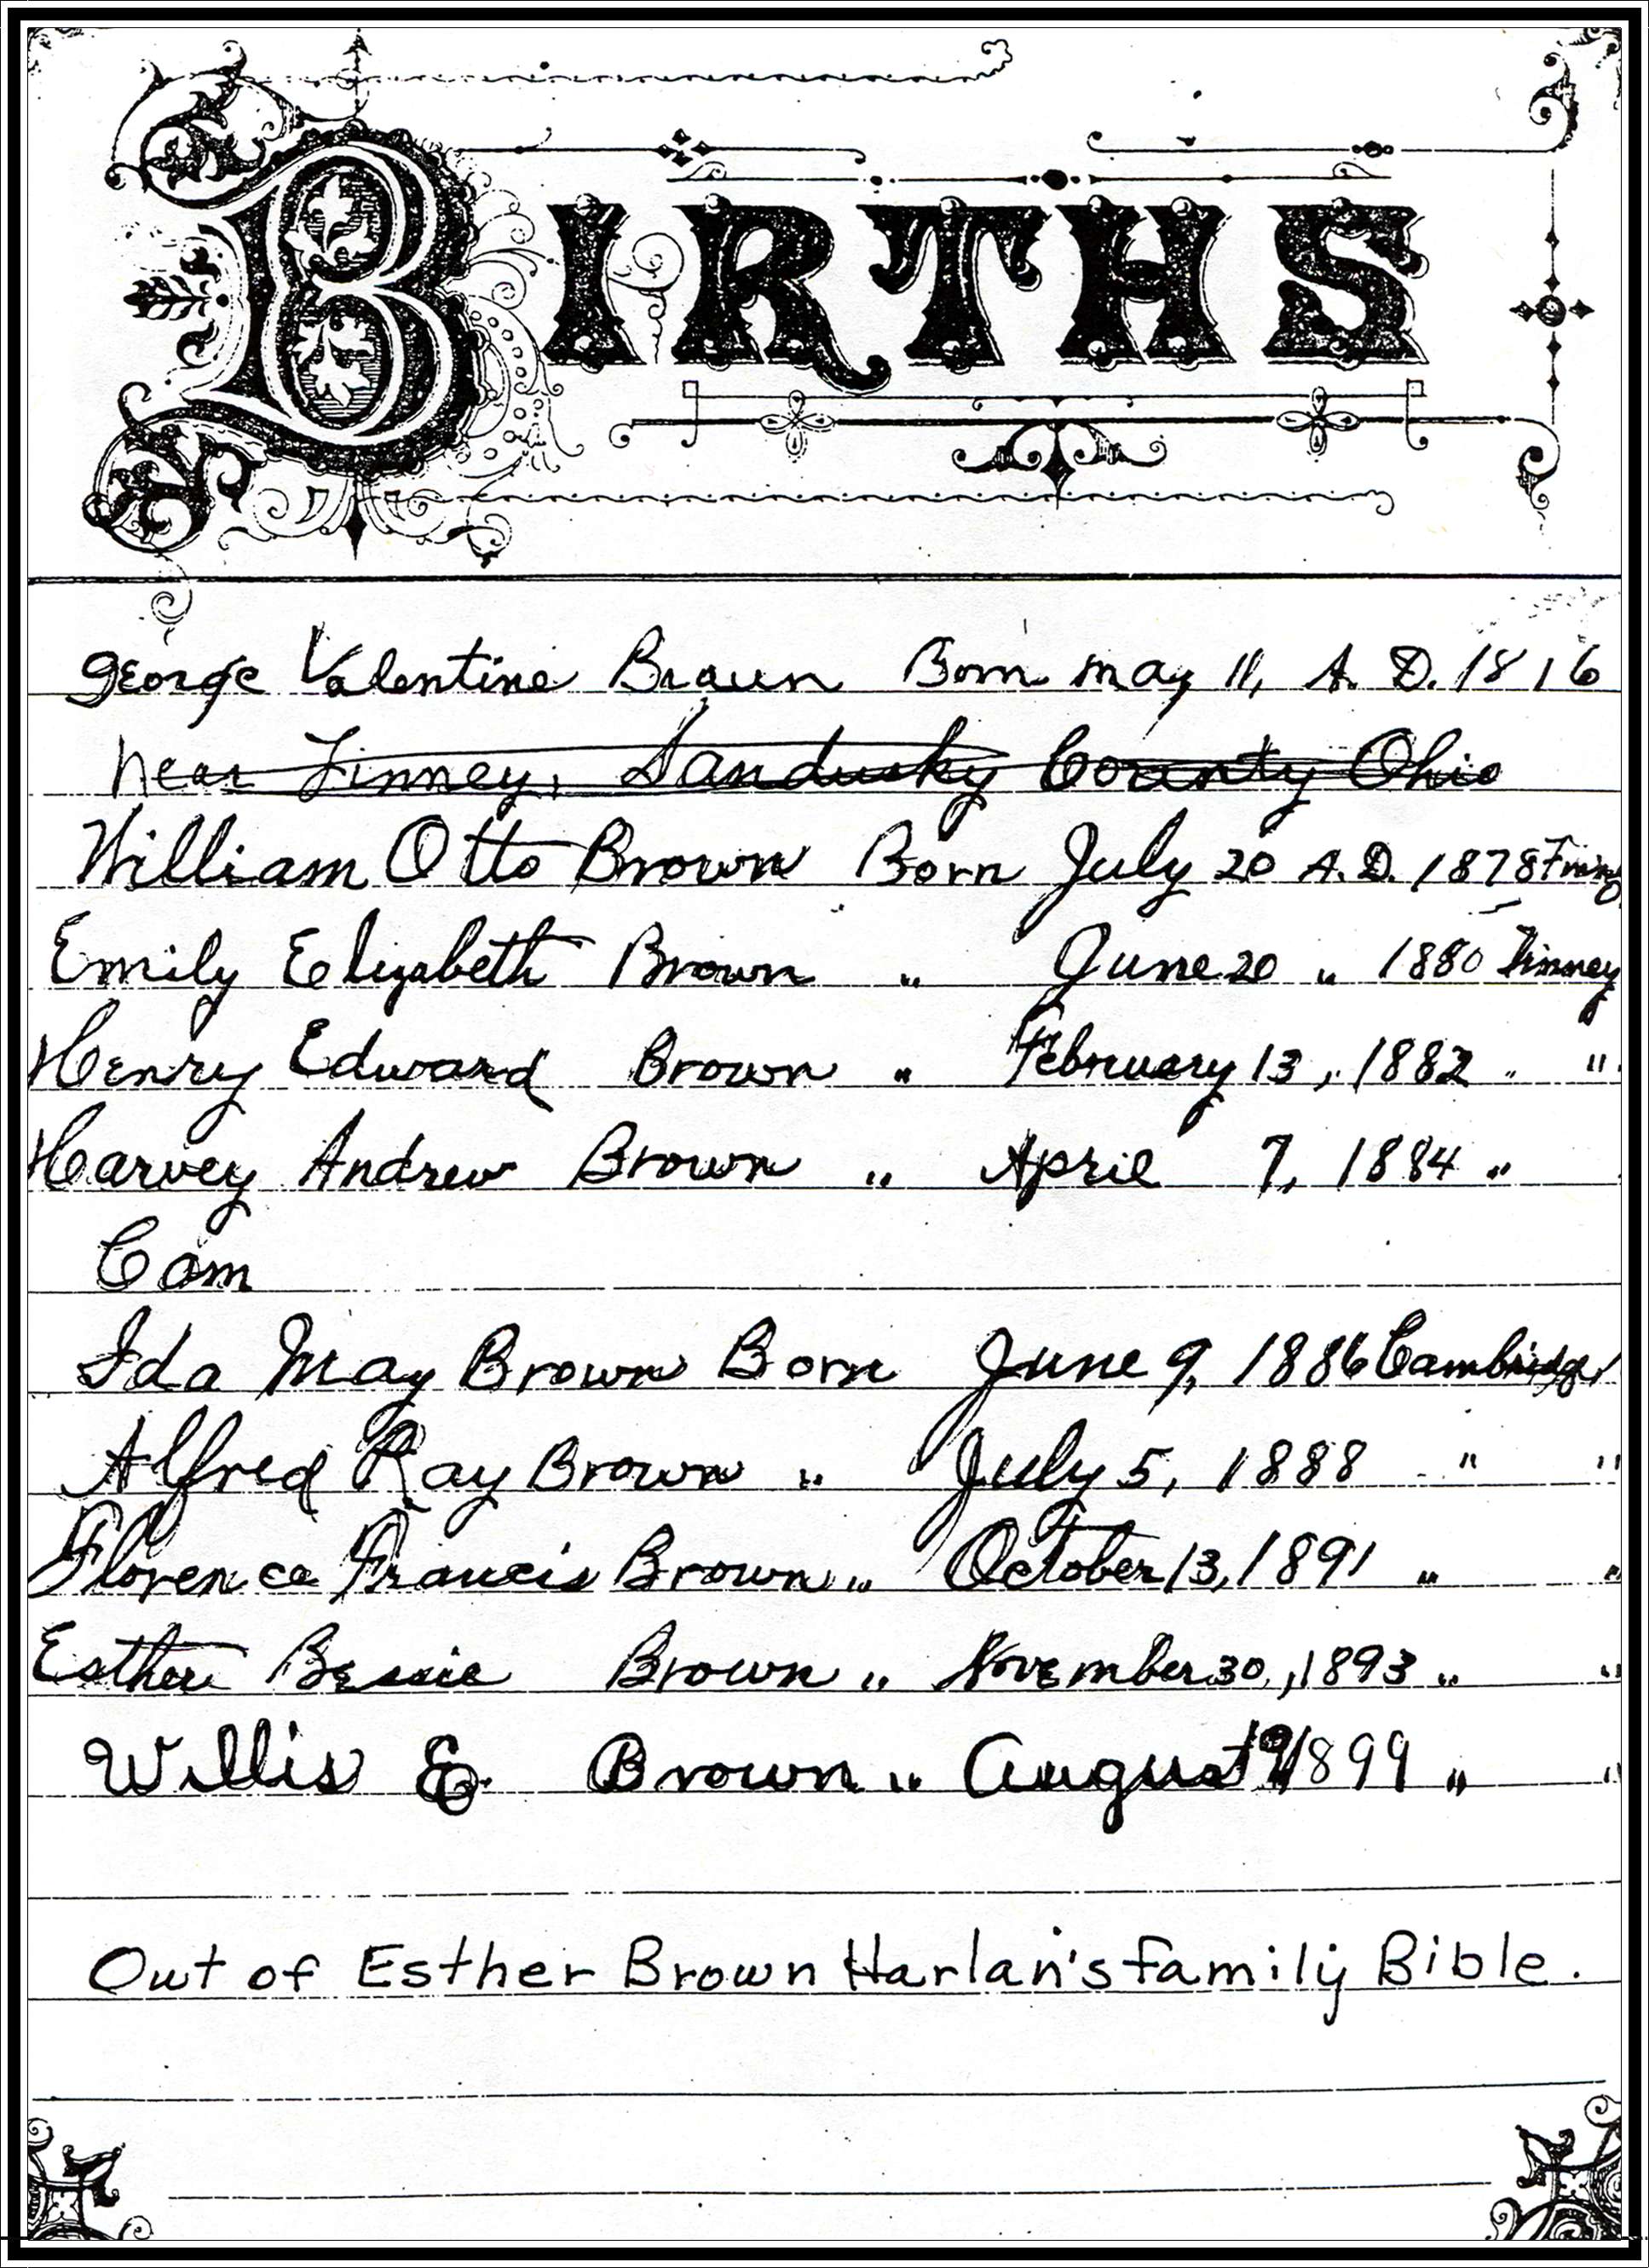 BIRTHS
George Valentine Braun Born may 11, A. D. 1816
near Finney, Sandusky County Ohio
William Otto Brown Born July 20 A.D. 1878
Emily Elizabeth Brown " June 20 " 1880 Finney
Henry Edward Brown " February 13, 1882 " "
Harvey Andrew Brown " April 7, 1884 "
Cam
Ida May Brown Born June 9, 1886 Cambridge
Alfred Ray Brown " July 5, 1888 " "
Florence Francis Brown " October 13, 1891 " "
Esther Bessie Brown " November 30, 1893 " "
Willis E. Brown " August 1899 " "
Out of Esther Brown Harlan's family Bible.